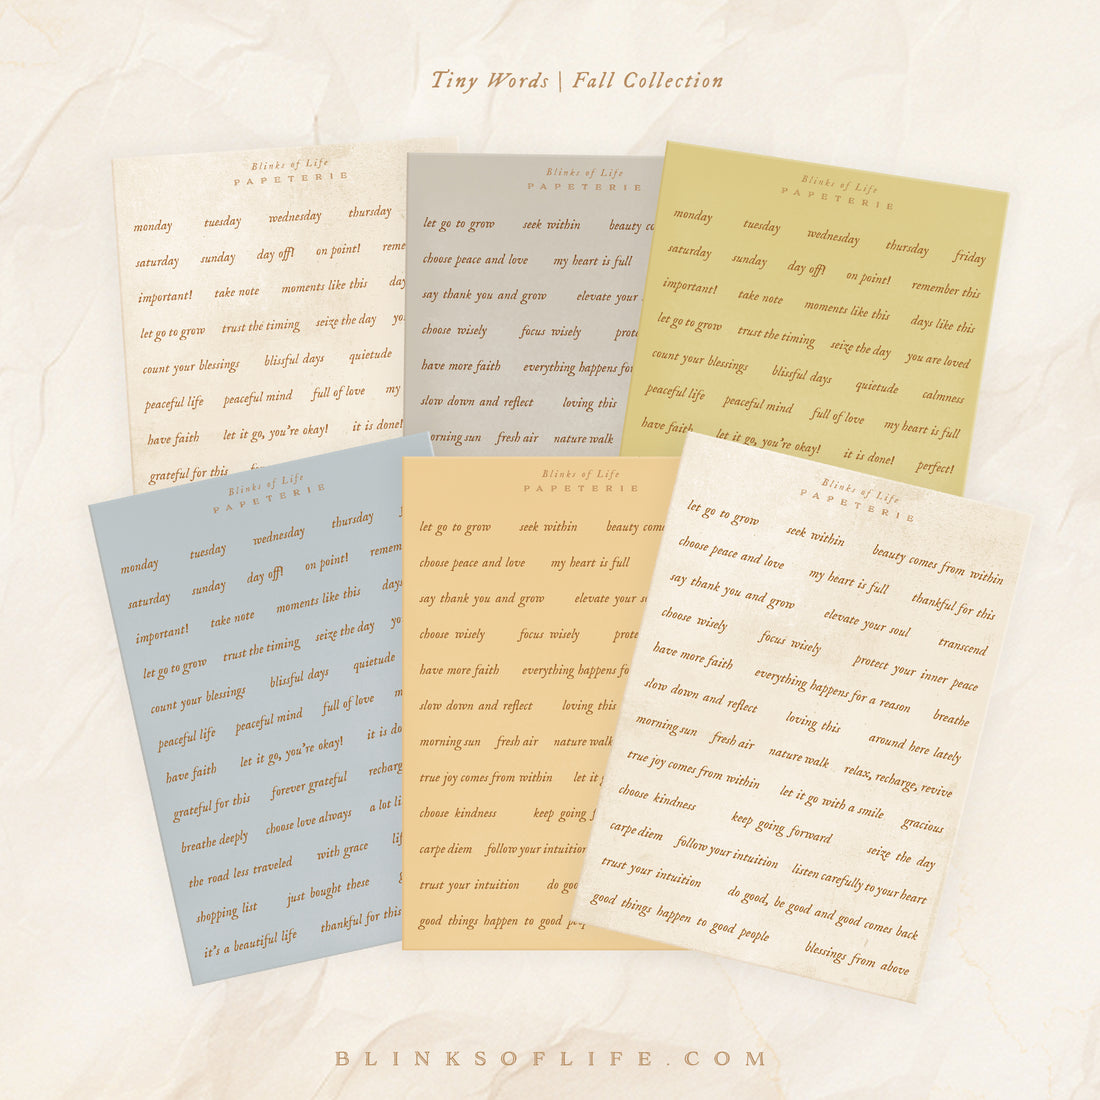 Tiny Words | Fall Collection
Blinks of Life
PAPETERIE
monday tuesday wednesday thursday
saturday sunday day off! on point!
important! take note moments like this
let go to grow trust the timing seize the day
count your blessings blissful days quietude
peaceful life peaceful mind full of love my
have faith let it go, you're okay! it is done!
grateful for this
Blinks of Life
PAPETERIE
let go to grow seek within beauty
choose peace and love my heart is full
say thank you and grow elevate your
choose wisely focus wisely
have more faith everything happens
slow down and reflect loving this
morning sun fresh air nature walk
Blinks of Life
PAPETERIE
monday tuesday wednesday thursday friday
saturday sunday day off! on point! remember this
important! take note moments like this days like this
let go to grow trust the timing seize the day you are loved
count your blessings blissful days quietude calmness
peaceful life peaceful mind full of love my heart is full
have faith let it go, you're okay! it is done! perfect!
Blinks of Life
PAPETERIE
monday tuesday wednesday thursday
saturday sunday day off! on point!
important! take note moments like this days
let go to grow trust the timing seize the day
count your blessings blissful days quietude
peaceful life peaceful mind full of love
have faith let it go, you're okay! it is
grateful for this forever grateful
breathe deeply choose love always a lot
the road less traveled with grace
shopping list just bought these
it's a beautiful life thankful for this
Blinks of Life
PAPETERIE
let go to grow seek within beauty
choose peace and love my heart is full
say thank you and grow elevate your
choose wisely focus wisely
have more faith everything happens
slow down and reflect loving this
morning sun fresh air nature walk
true joy comes from within let it
choose kindness keep going
carpe diem follow your intuition
trust your intuition do
good things happen to good
Blinks of Life
PAPETERIE
let go to grow seek within beauty comes from within
choose peace and love my heart is full thankful for this
say thank you and grow elevate your soul transcend
choose wisely focus wisely protect your inner peace
have more faith everything happens for a reason breathe
slow down and reflect loving this around here lately
morning sun fresh air nature walk relax, recharge, revive
true joy comes from within let it go with a smile gracious
choose kindness keep going forward seize the day
carpe diem follow your intuition listen carefully to your heart
trust your intuition do good, be good and good comes back
good things happen to good people blessings from above
BLINKSOFLIFE.COM